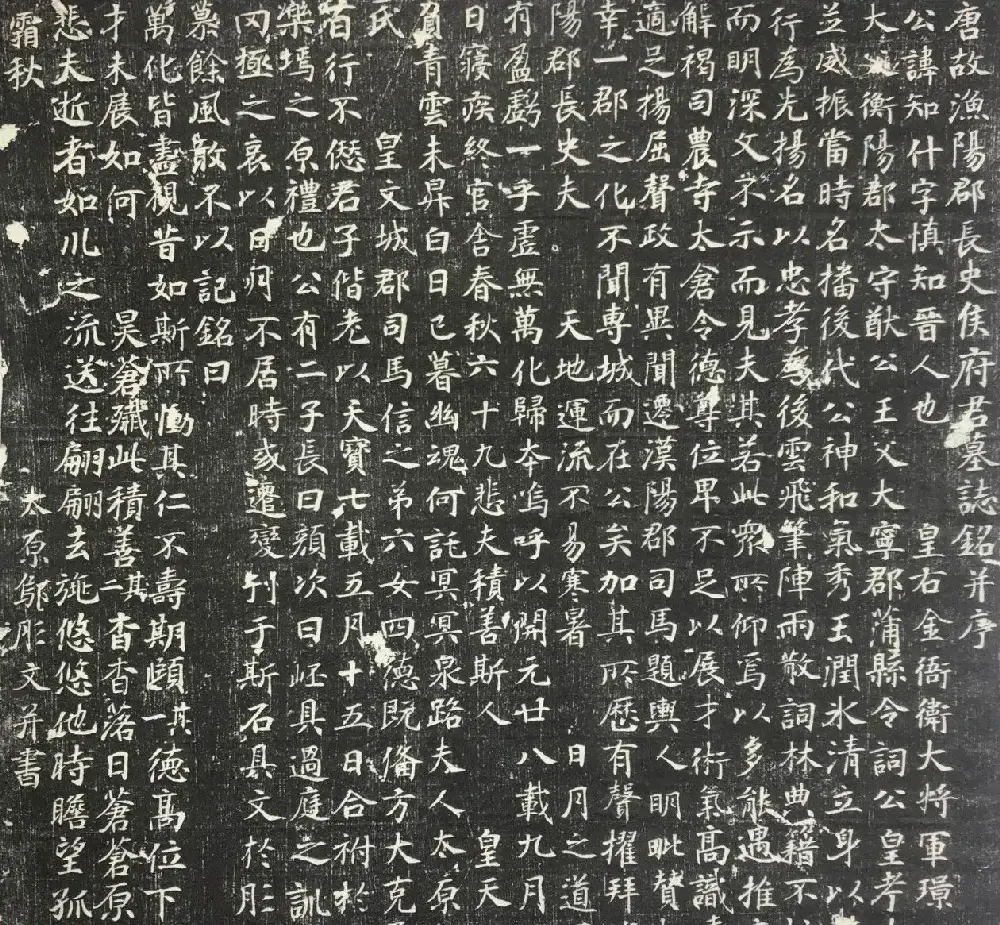 唐故漁陽郡長史侯府君墓誌銘并序
公諱知什字慎知晉人也 皇右金衙衛大將軍璟
大父衡陽郡太守猷公王父大寧郡蒲縣令詞公皇考
並威振當時名播後代公神和氣秀玉潤氷清立身以
行為先揚名以忠孝為後雲飛筆陣雨散詞林典籍不
而明深文不示而見夫其若此衆所仰焉以多能遇推
解褐司農寺太倉令德尊位卑不足以展才術氣高識
適足揚屈聲政有異聞遷漢陽郡司馬題輿人明毗賛
幸一郡之化不聞專城而在公矣加其所歷有聲擢拜
陽郡長史夫。 天地運流不易寒暑 日月之道
有盈虧一乎虛無萬化歸本嗚呼以開元廿八載九月
日寢疾終官舍春秋六十九悲夫積善斯人 皇天
負青雲未昇白日已暮幽魂何託冥冥泉路夫人太原
氏 皇文城郡司馬信之弟六女四德既偹方大克
百行不僁君子偕老以天寶七載五月十五日合祔於
樂墕之原禮也公有二子長曰顏次曰岯具過庭之訓
冈極之哀以日月不居時或遷變刊于斯石具文於肜
慕餘風敢不以記銘曰
萬化皆盡視昔如斯所慟其仁不壽期頤一其德高位下
才未展如何 昊蒼殲此積善二其杳杳落日蒼蒼原
悲夫逝者如川之流送往翩翩去旐悠悠他時瞻望孤
霜秋
太原鄔肜文并書